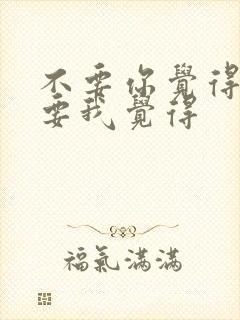 不要你覺得
要我覺得
福氣滿滿